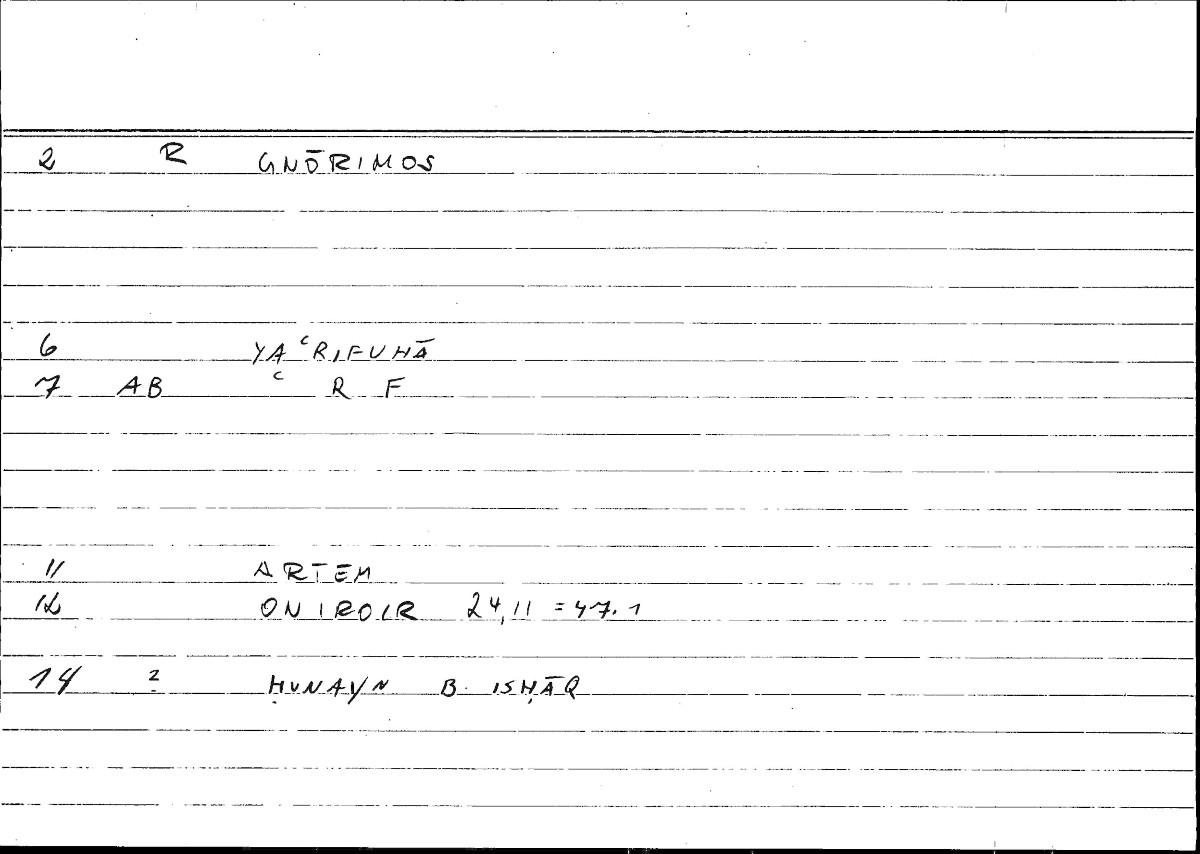 2 R GNŌRIMOS
6 YAʿRIFUHĀ
7 AB ʿ R F
11 ARTEM
12 ONIROCR 24,11 = 47.1
14 2 ḤUNAYN B. ISḤĀQ